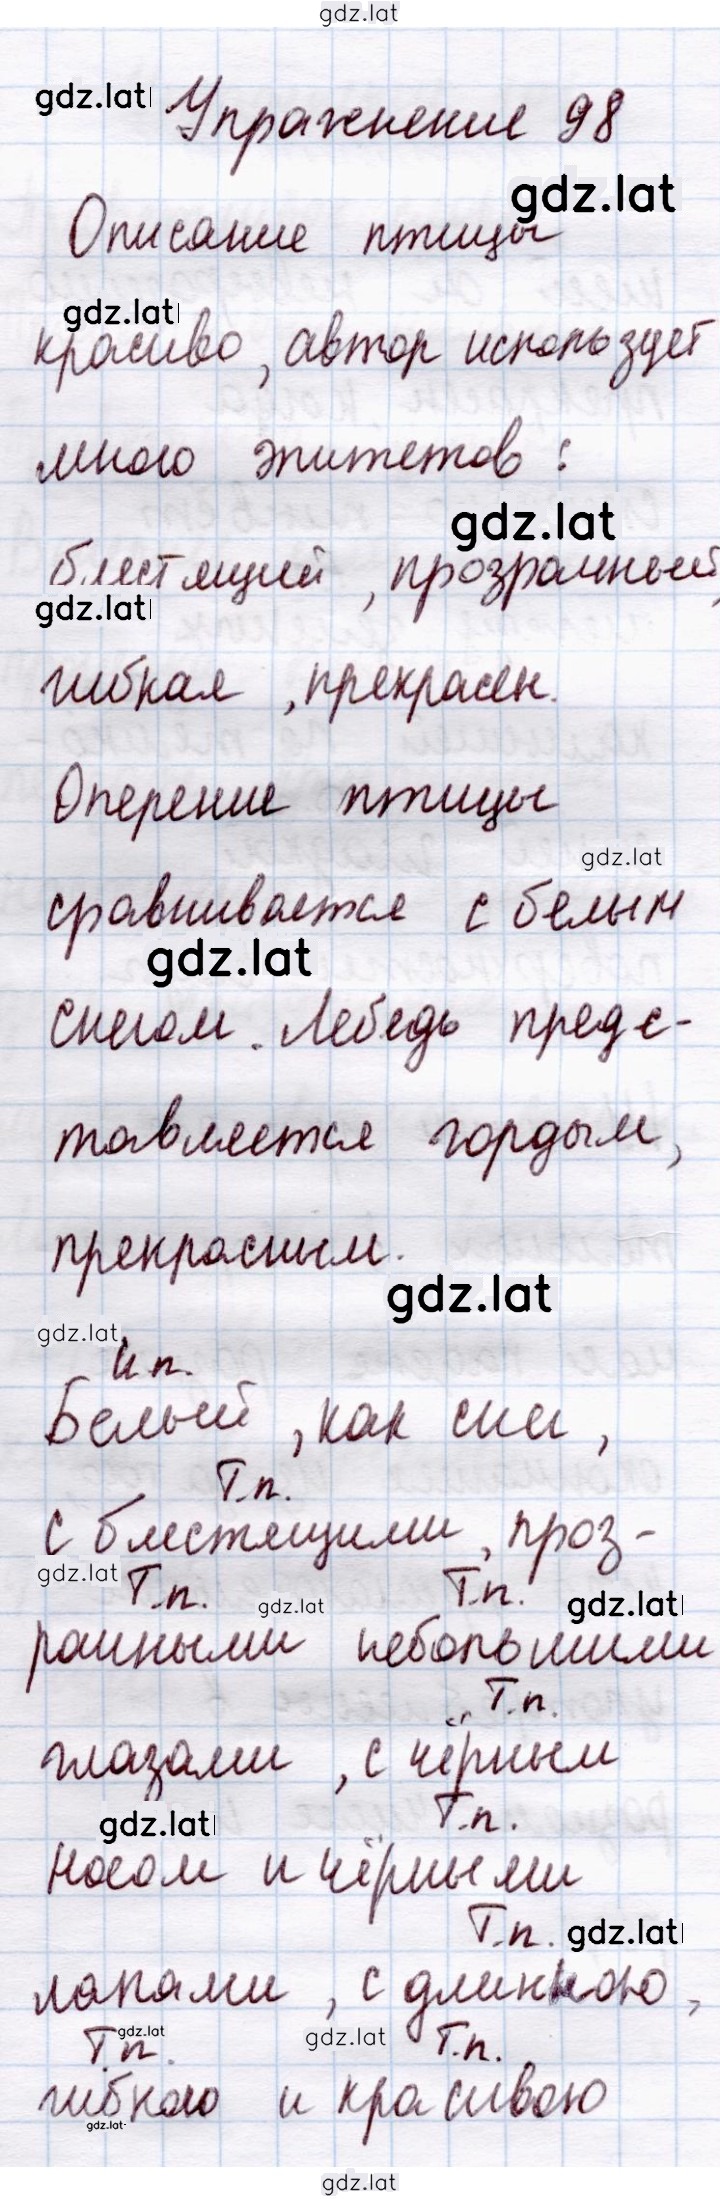 gdz.lat
gdz.lat
Упражнение 98
gdz.lat
Описание птицы
gdz.lat
красиво, автор использует
много эпитетов:
gdz.lat
блестящий, прозрачный,
gdz.lat
гибкая, прекрасен.
Оперение птицы
gdz.lat
сравнивается с белым
gdz.lat
снегом. Лебедь предс-
тавляется гордым,
прекрасным.
gdz.lat
gdz.lat
И.п.
Белый, как снег,
Т.п.
с блестящими, проз-
gdz.lat
Т.п. Т.п.
gdz.lat
gdz.lat
рачными небольшими
Т.п.
глазами, с чёрным
gdz.lat
Т.п.
носом и чёрными
Т.п.
gdz.lat
лапами, с длинною,
gdz.lat
gdz.lat
Т.п. Т.п.
гибкою и красивою
gdz.lat
gdz.lat